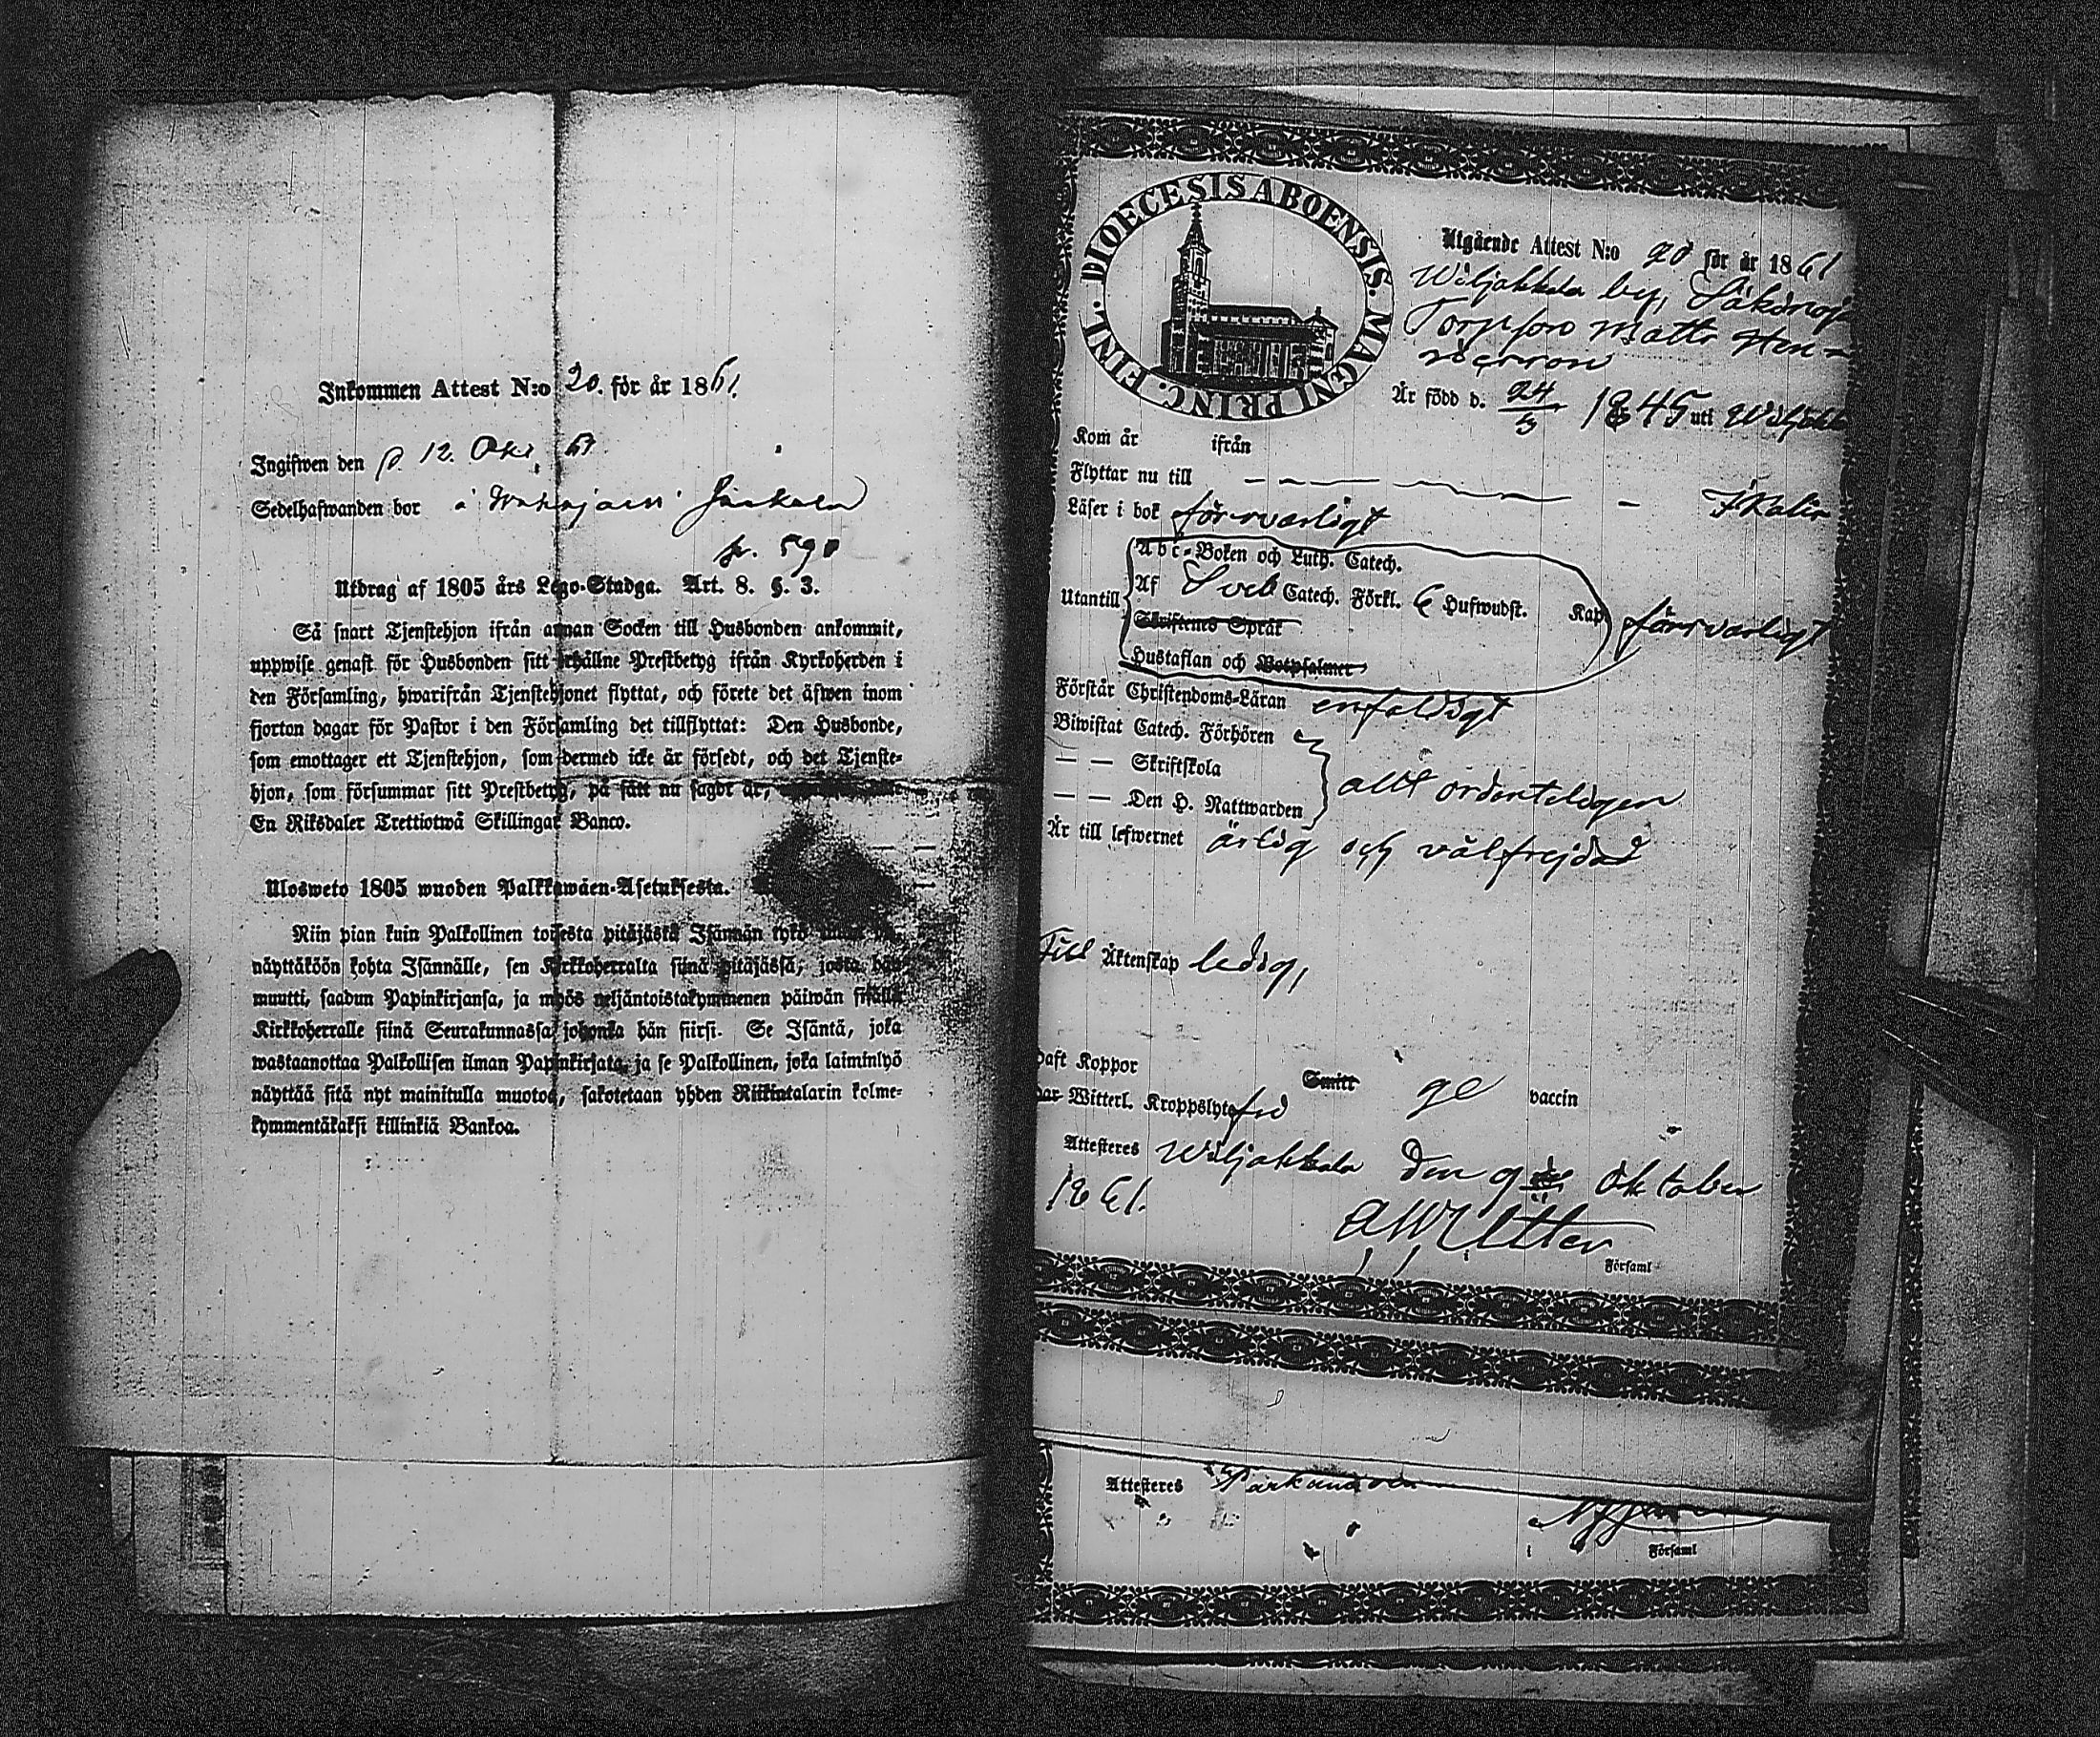 Inkommen Attest N:o 20. för år 1861.
Ingifwen den d. 12. Okt. 61
Sedelhafwanden bor à
p. 590
Utdrag af 1805 års Lego-Stadga. Art. 8. §. 3.
Så snart Tjenstehjon ifrån annan Socken till Husbonden ankommit,
uppwise genast för Husbonden sitt erhållne Prestbetyg ifrån Kyrkoherden i
den Församling, hwarifrån Tjenstehjonet flyttat, och förete det äfwen inom
fjorton dagar för Pastor i den Församling det tillflyttat: Den Husbonde,
som emottager ett Tjenstehjon, som dermed icke är försedt, och det Tjenste-
hjon, som försummar sitt Prestbetyg, på sätt nu sagdt är,
En Riksdaler Trettiotwå Skillingar Banco.
Ulosweto 1805 wuoden Palkkawäen-Asetuksesta.
Niin pian kuin Palkollinen toisesta pitäjästä Isännän tykö
näyttäköön kohta Isännälle, sen Kirkkoherralta siinä pitäjässä, josta hän
muutti, saadun Papinkirjansa, ja myös neljäntoistakymmenen päiwän sisällä
Kirkkoherralle siinä Seurakunnassa johonka hän siirsi. Se Isäntä, joka
wastaanottaa Palkollisen ilman Papinkirjata, ja se Palkollinen, joka laiminlyö
näyttää sitä nyt mainitulla muotoa, sakotetaan yhden Riikintalarin kolme-
kymmentäkaksi killinkiä Bankoa.
DIOECESIS ABOENSIS. MAGNI PRINC. FINL.
Utgående Attest N:o 20 för år 1861
Wiljakkala by,
Torpson Matts Hen-
Är född d. 24/3 1845 uti Wiljakka
Kom år ifrån
Flyttar nu till — — — Ikalis
Läser i bok försvarligt
Abc-Boken och Luth. Catech.
Utantill Af Sveb Catech. Förkl. 6 Hufwudst. Kap försvarligt
Skriftenes Språk
Hustaflan och Botpsalmer
Förstår Christendoms-Läran enfaldigt
Biwistat Catech. Förhören
— — Skriftskola allt ordenteligen
— — Den H. Nattwarden
Är till lefwernet ärlig och välfrejdad
Till Äktenskap ledig,
haft Koppor Smitt ge vaccin
har Witterl. Kroppslyte fri
Attesteres Wiljakkala den 9de Oktober
1861.
Församl
Attesteres Parkano
Församl